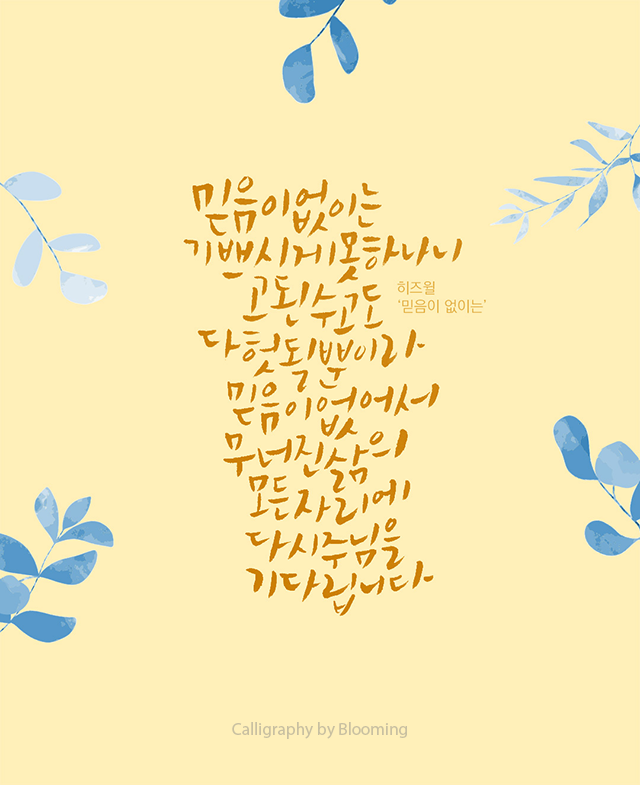 믿음이 없이는
기쁘시게 못하나니
고된 수고도
히즈윌
'믿음이 없이는'
다 헛될 뿐이라
믿음이 없어서
무너진 삶의
모든 자리에
다시 주님을
기다립니다
Calligraphy by Blooming